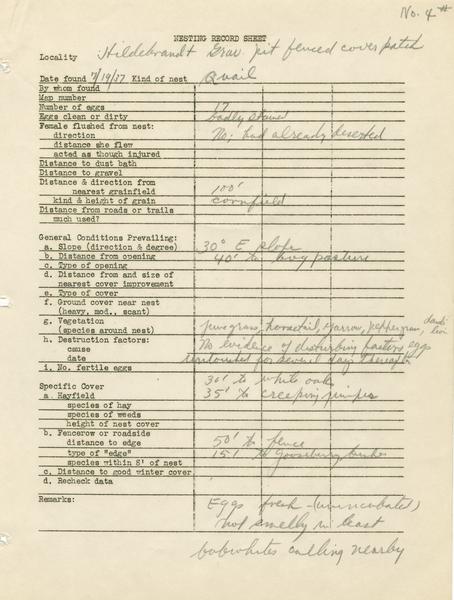 No. 4 #
NESTING RECORD SHEET
Locality Hildebrandt Grav. pit fenced cover patch
Date found 7/19/37 Kind of nest Quail
By whom found
Map number
Number of eggs 17
Eggs clean or dirty badly stained
Female flushed from nest: No; had already deserted
direction
distance she flew
acted as though injured
Distance to dust bath
Distance to gravel
Distance & direction from
nearest grainfield 100'
kind & height of grain cornfield
Distance from roads or trails
much used?
General Conditions Prevailing:
a. Slope (direction & degree) 30° E slope
b. Distance from opening 40' to pasture
c. Type of opening
d. Distance from and size of
nearest cover improvement
e. Type of cover
f. Ground cover near nest
(heavy, mod., scant)
g. Vegetation
(species around nest) Junegrass, horsetail, yarrow, peppergrass, dandelion
h. Destruction factors: No evidence of disturbing factors, eggs
cause for several days thereafter
date
i. No. fertile eggs
30' to white oak
Specific Cover
a. Hayfield 35' to creeping juniper
species of hay
species of weeds
height of nest cover
b. Fencerow or roadside
distance to edge 50' to fence
type of "edge" 15' to gooseberry bushes
species within 5' of nest
c. Distance to good winter cover
d. Recheck data
Remarks: Eggs fresh - (unincubated)
not smelly in least
bobwhites calling nearby